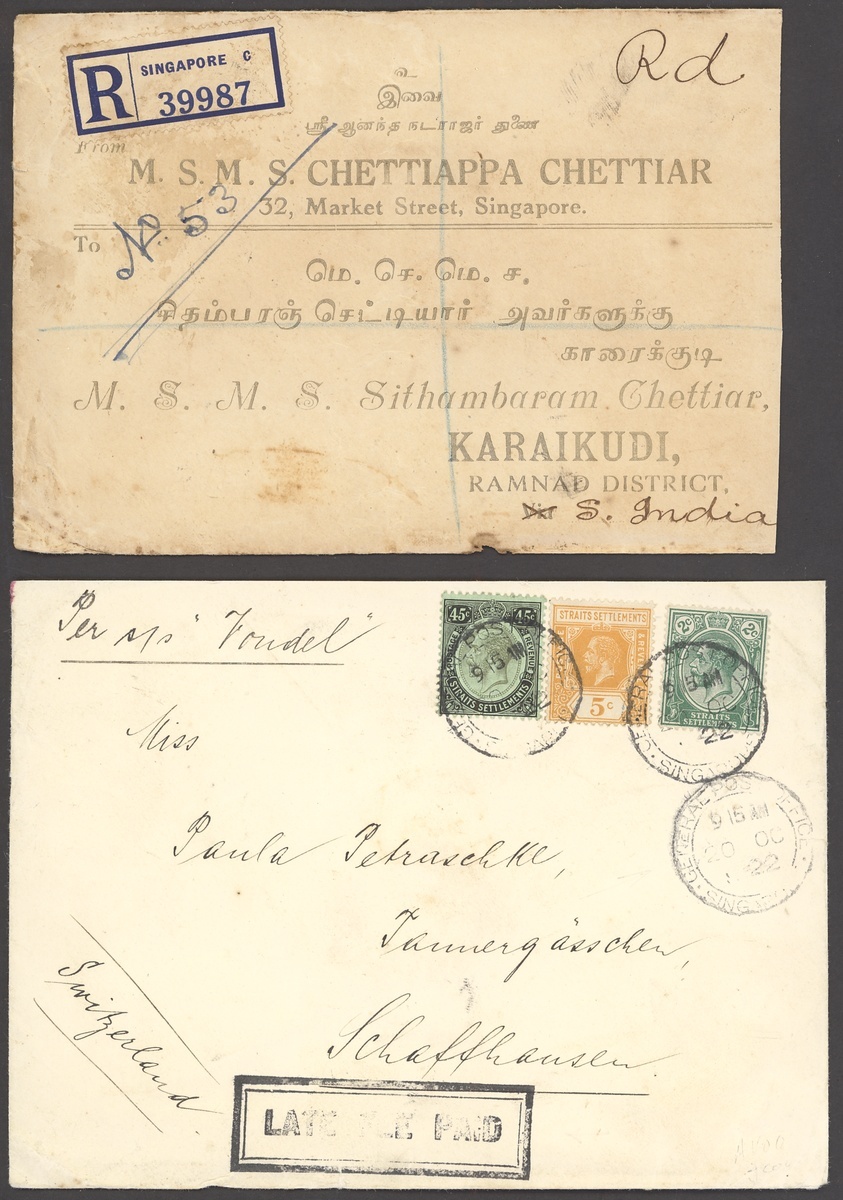 R SINGAPORE C
39987
Rd
உ
இவை
ஸ்ரீ ஆனந்த நடராஜர் துணை
From
M. S. M. S. CHETTIAPPA CHETTIAR
32, Market Street, Singapore.
No. 53
To
மெ. செ. மெ. ச.
சிதம்பரஞ் செட்டியார் அவர்களுக்கு
காரைக்குடி
M. S. M. S. Sithambaram Chettiar,
KARAIKUDI,
RAMNAD DISTRICT,
Via S. India
Per s/s "Vondel"
45c 45c
POSTAGE REVENUE
STRAITS SETTLEMENTS
STRAITS SETTLEMENTS
& REVENUE
5c
2c 2c
STRAITS
SETTLEMENTS
POST OFFICE
9 15 AM
GENERAL POST OFFICE
9 15 AM
OC
22
SINGAPORE
GENERAL POST OFFICE
9 15 AM
20 OC
22
SINGAPO
Miss
Paula Petraschke,
Tannergässchen,
Schaffhausen.
Switzerland.
LATE FEE PAID